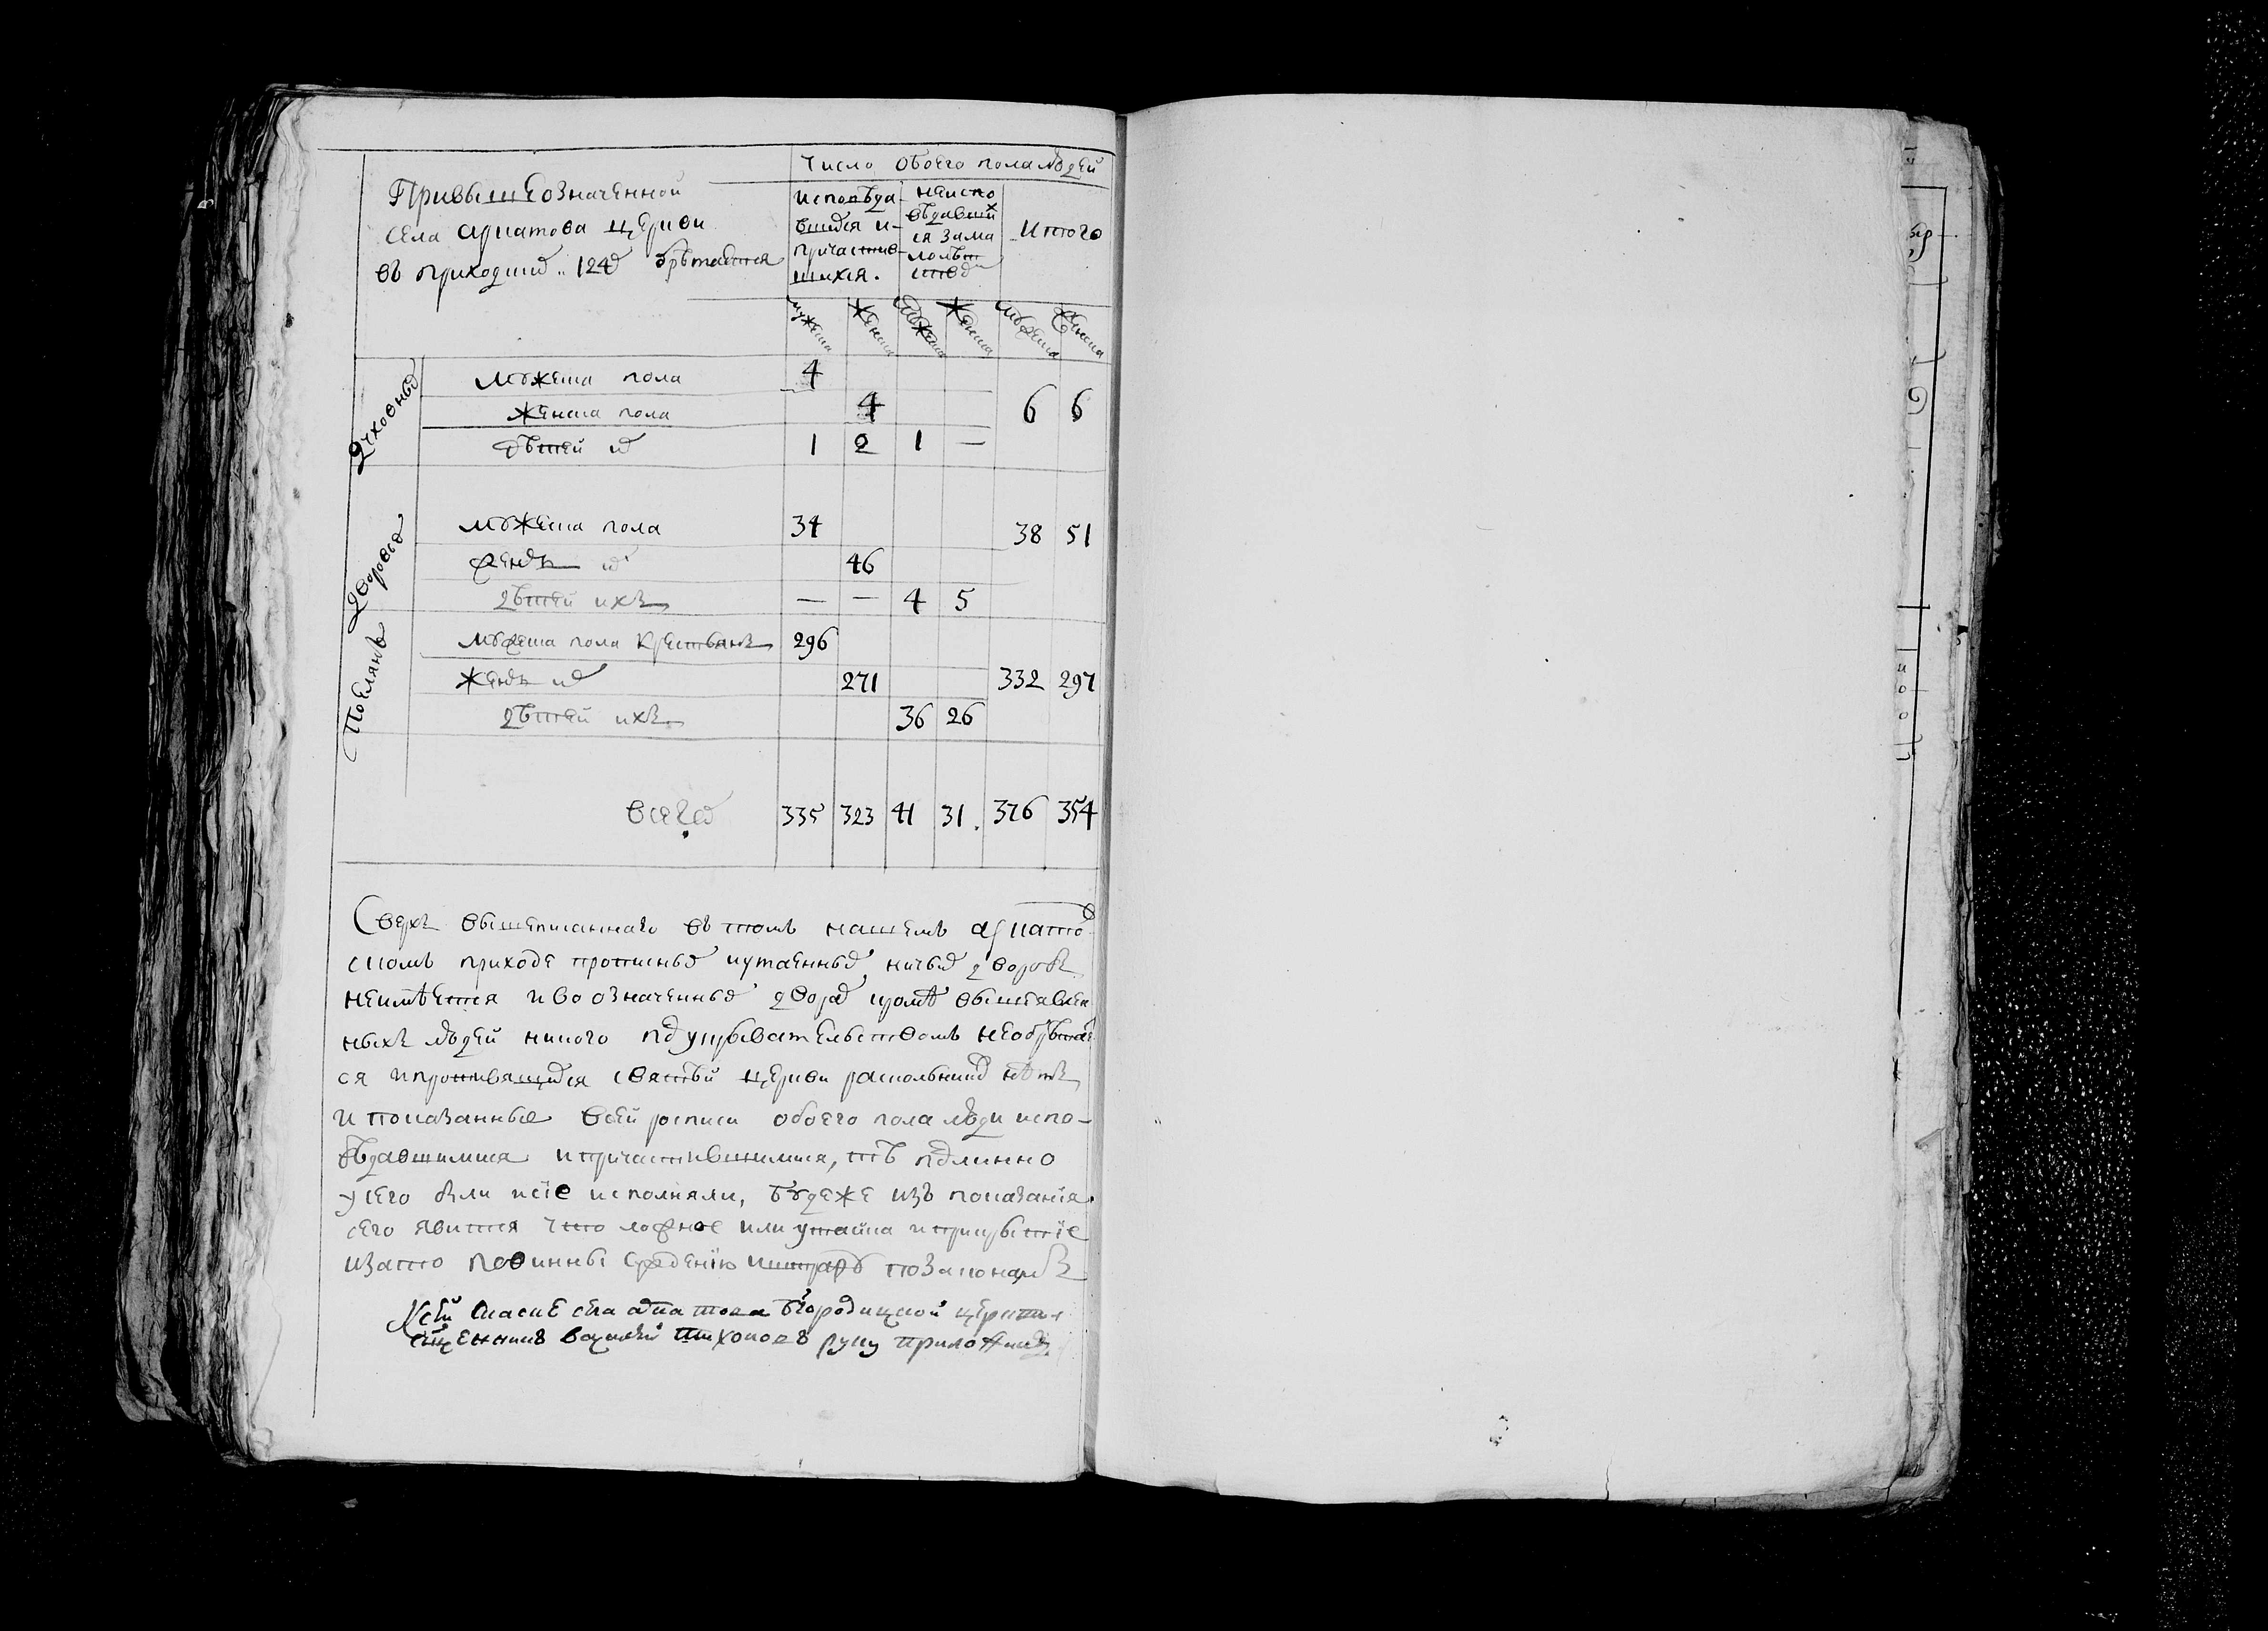 Число обоего пола людей
При вышеозначенной
села аркатова церкви
въ приходскихъ 124х обретается
исповеда-
вшихся и
причастив-
шихся.
неиспо
ведавших
ся за ма
лолет
ством
Итого
мужеска женска мужеска женска мужеска женска
Духовныхъ
мужеска пола 4
женска пола 4 6 6
детей их 1 2 1 —
Дворовых
мужеска пола 34 38 51
женъ их 46
детей ихъ — — 4 5
Поселянъ
мужеска пола крестьянъ 296
женъ их 271 332 297
детей ихъ 36 26
всего 335 323 41 31. 376 354
Сверхъ вышеписаннаго въ томъ нашемъ аркатов
скомъ приходе прописных и утаенных ничьих дворовъ
неимеется и во означенных дворах кроме вышеявлен
ныхъ людей никого под укрывательствомъ необретает
ся и противящихся святей церкви раскольников нетъ
и показанные всей росписи обоего пола люди испо-
ведавшимися и причастившимися, те подлинно
у сего были и сїе исполняли, буде же изъ показанїя
сего явится что ложное или утайка и прикрытїе
и за то повинны суждению и штрафу по законамъ
К сей сказке села аркатова Богородицкой церкви
священникъ василей тихоновъ руку приложилъ